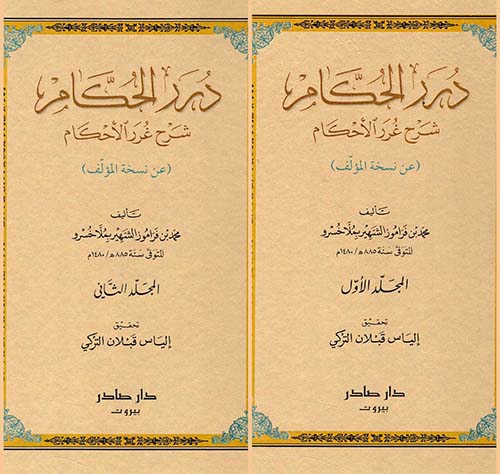 درر الحكام
شرح غرر الأحكام
(عن نسخة المؤلّف)
تأليف
محمد بن فراموز الشهير بملا خسرو
المتوفى سنة ٨٨٥هـ/١٤٨٠م
المجلد الأوّل
تحقيق
إلياس قبلان التركي
دار صادر
بيروت
درر الحكام
شرح غرر الأحكام
(عن نسخة المؤلّف)
تأليف
محمد بن فراموز الشهير بملا خسرو
المتوفى سنة ٨٨٥هـ/١٤٨٠م
المجلد الثاني
تحقيق
إلياس قبلان التركي
دار صادر
بيروت